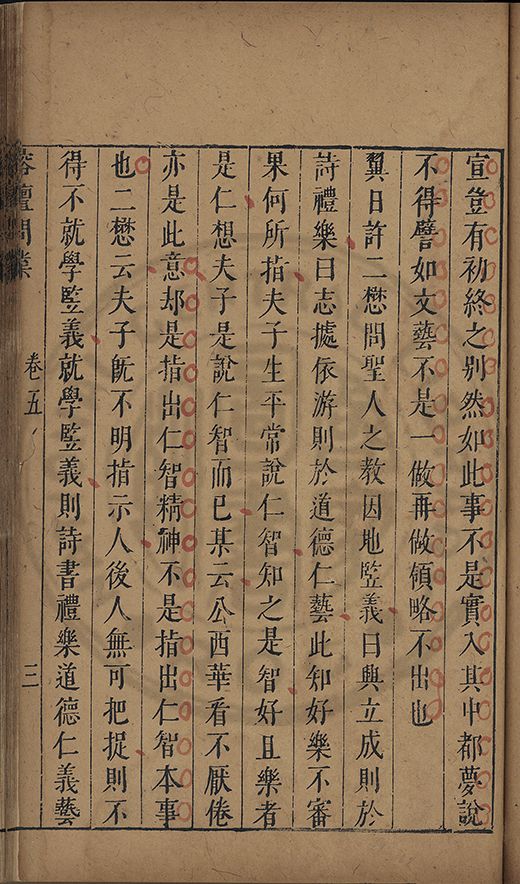 宣豈有初終之别然如此事不是實入其中都夢說
不得譬如文藝不是一做再做領略不出也
翼日許二懋問聖人之教因地竪義曰興立成則於
詩禮樂曰志據依游則於道德仁藝此知好樂不審
果何所指夫子生平常說仁智知之是智好且樂者
是仁想夫子是說仁智而已某云公西華看不厭倦
亦是此意却是指出仁智精神不是指出仁智本事
也二懋云夫子旣不明指示人後人無可把捉則不
得不就學竪義就學竪義則詩書禮樂道德仁義藝
榕壇問業
卷五
三